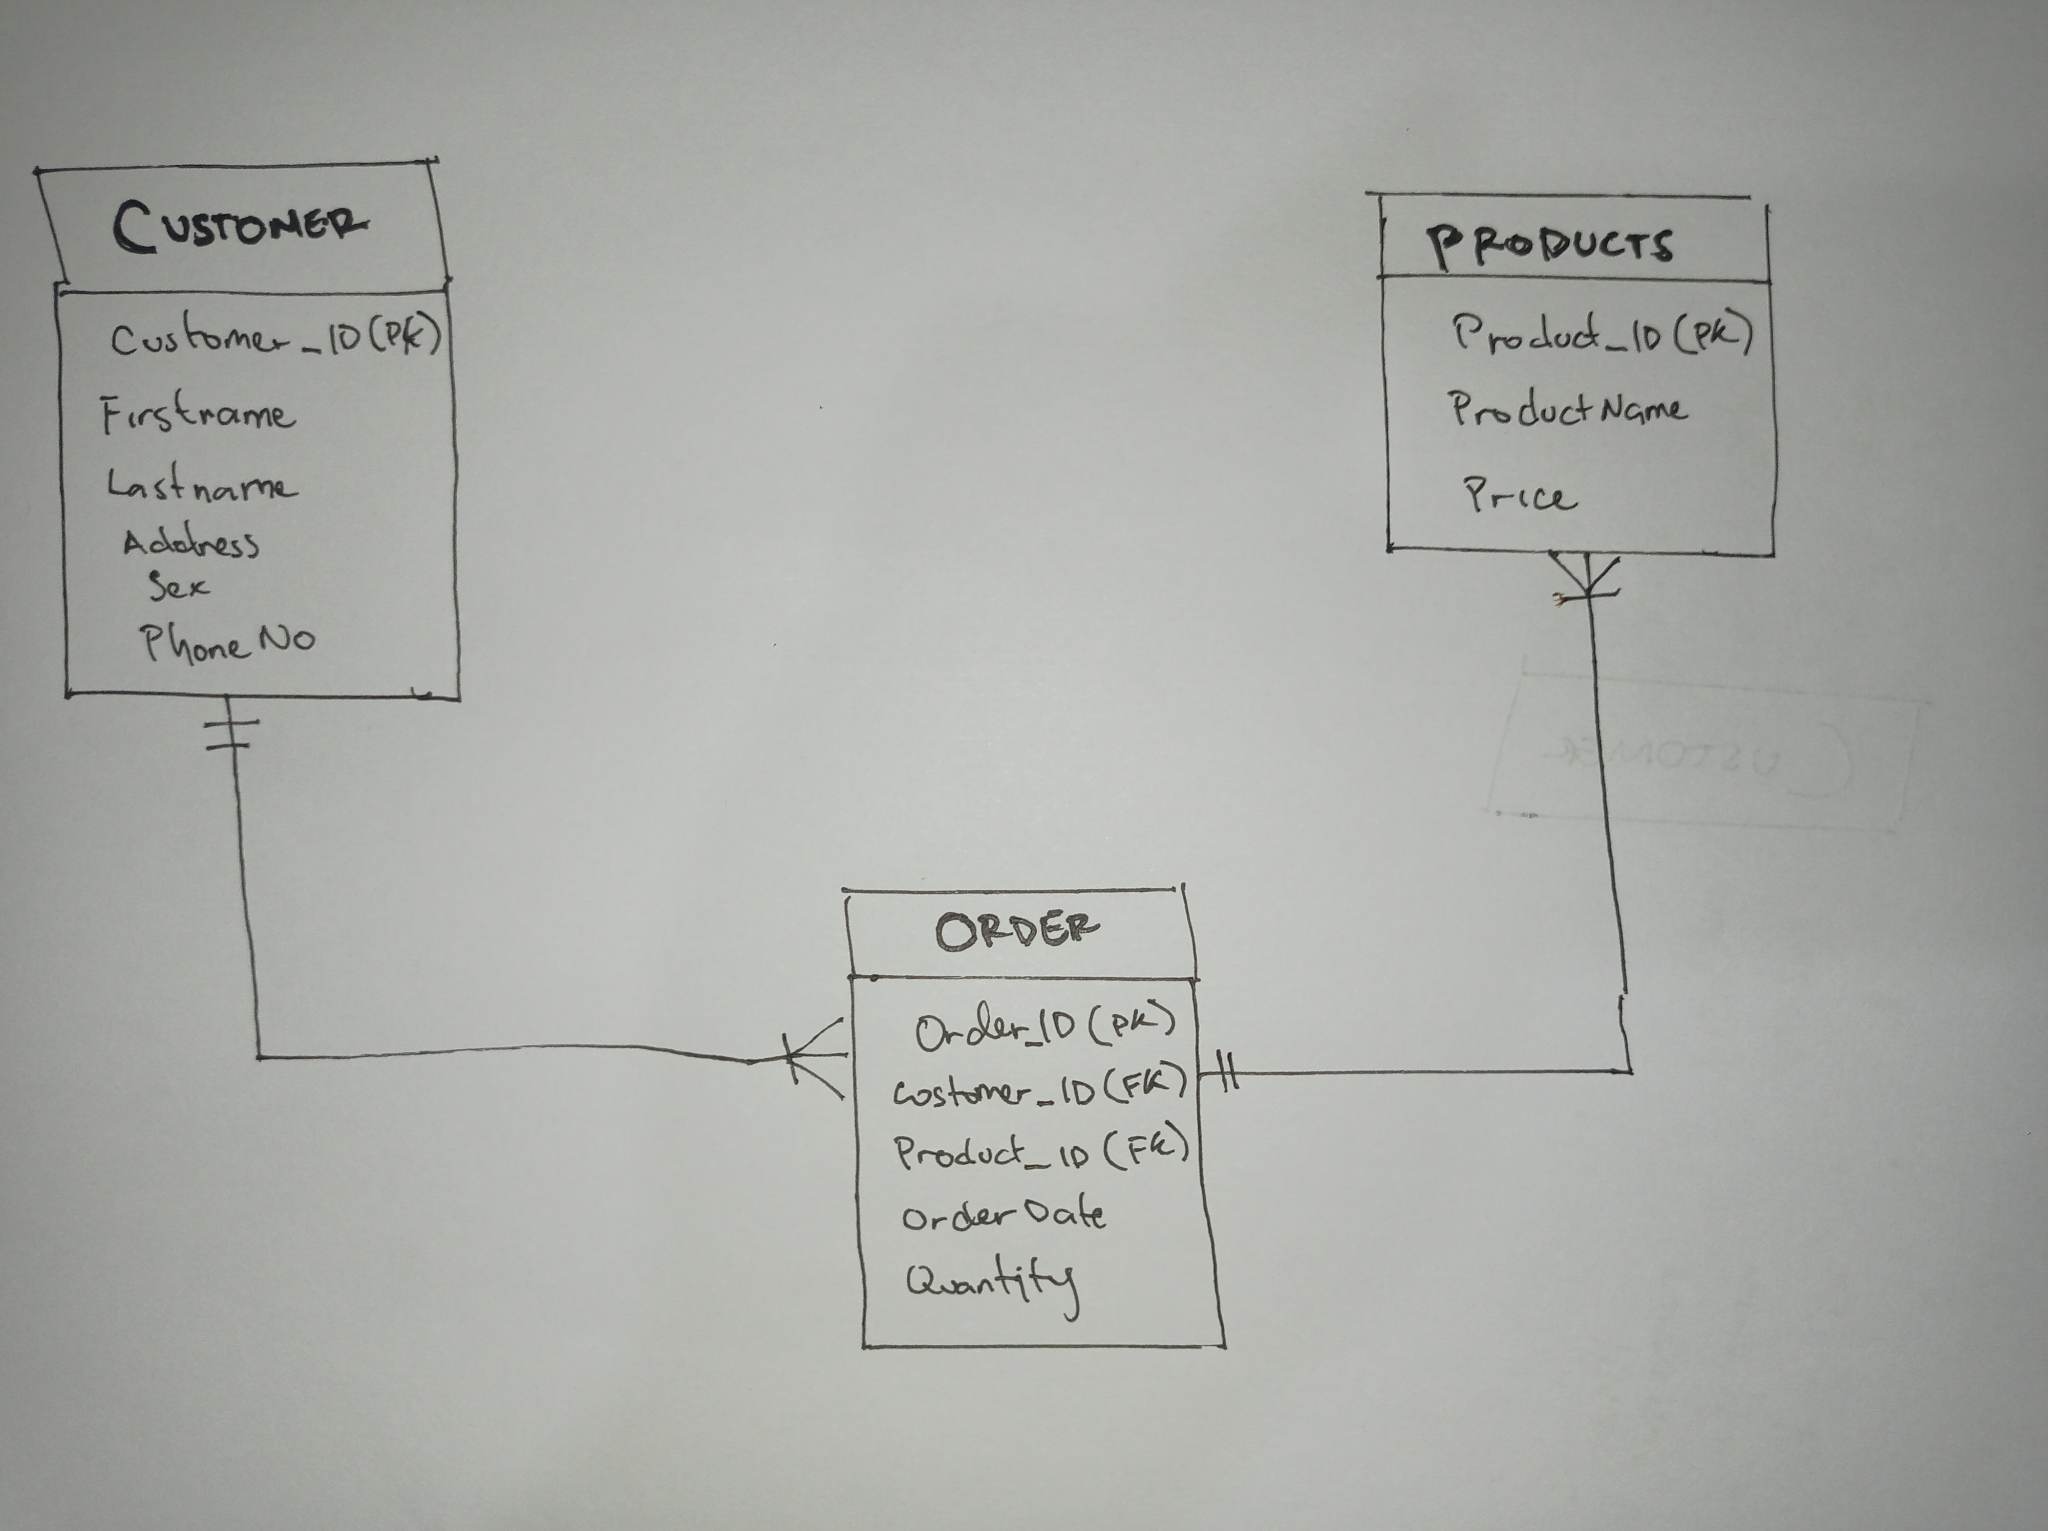 CUSTOMER
Customer_ID (PK)
Firstname
Lastname
Address
Sex
Phone No
PRODUCTS
Product_ID (PK)
Product Name
Price
CUSTOMER
ORDER
Order_ID (PK)
Costomer_ID (FK)
Product_ID (FK)
Order Date
Quantity